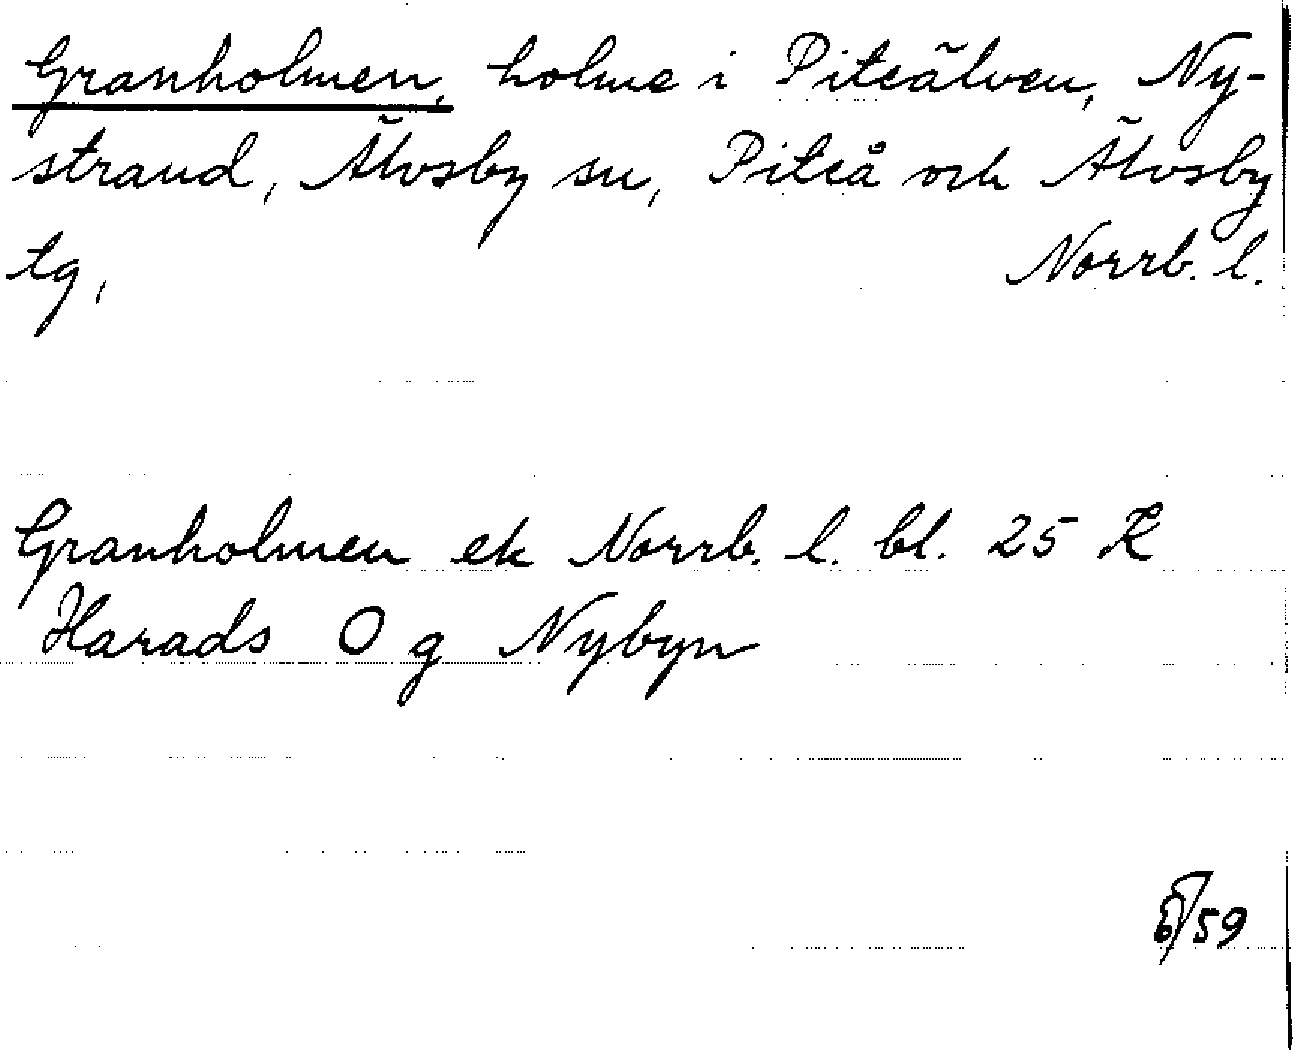 Granholmen, holme i Piteälven, Ny-
strand, Älvsby sn, Piteå och Älvsby
tg, Norrb. l.
Granholmen ek Norrb. l. bl. 25 K
Harads O g Nybyn
59